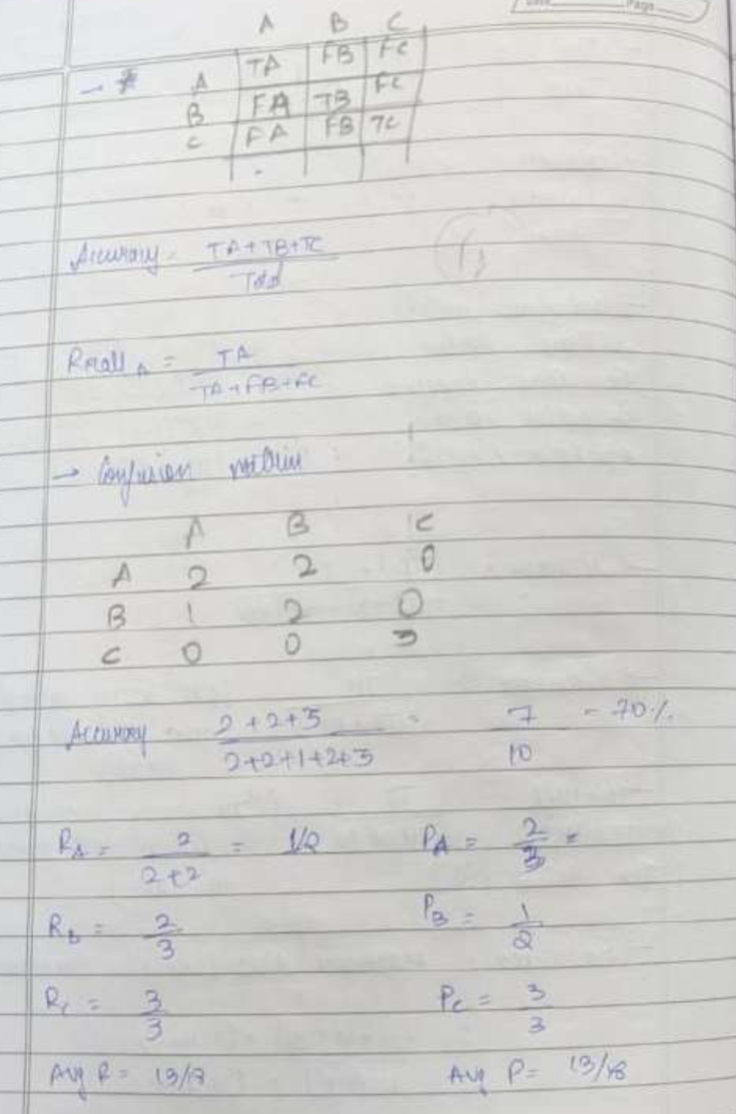 Date Page
A B C
→ * A TA FB FC
B FA TB FC
C FA FB TC
Accuracy = TA+TB+TC / Total
Recall A = TA / TA+FB+FC
→ Confusion matrix
A B C
A 2 2 0
B 1 2 0
C 0 0 3
Accuracy = 2+2+3 / 2+2+1+2+3 = 7 / 10 = 70%
RA = 2 / 2+2 = 1/2 PA = 2 / 3 =
RB = 2 / 3 PB = 1 / 2
RC = 3 / 3 PC = 3 / 3
Avg R = Avg P = 13/18